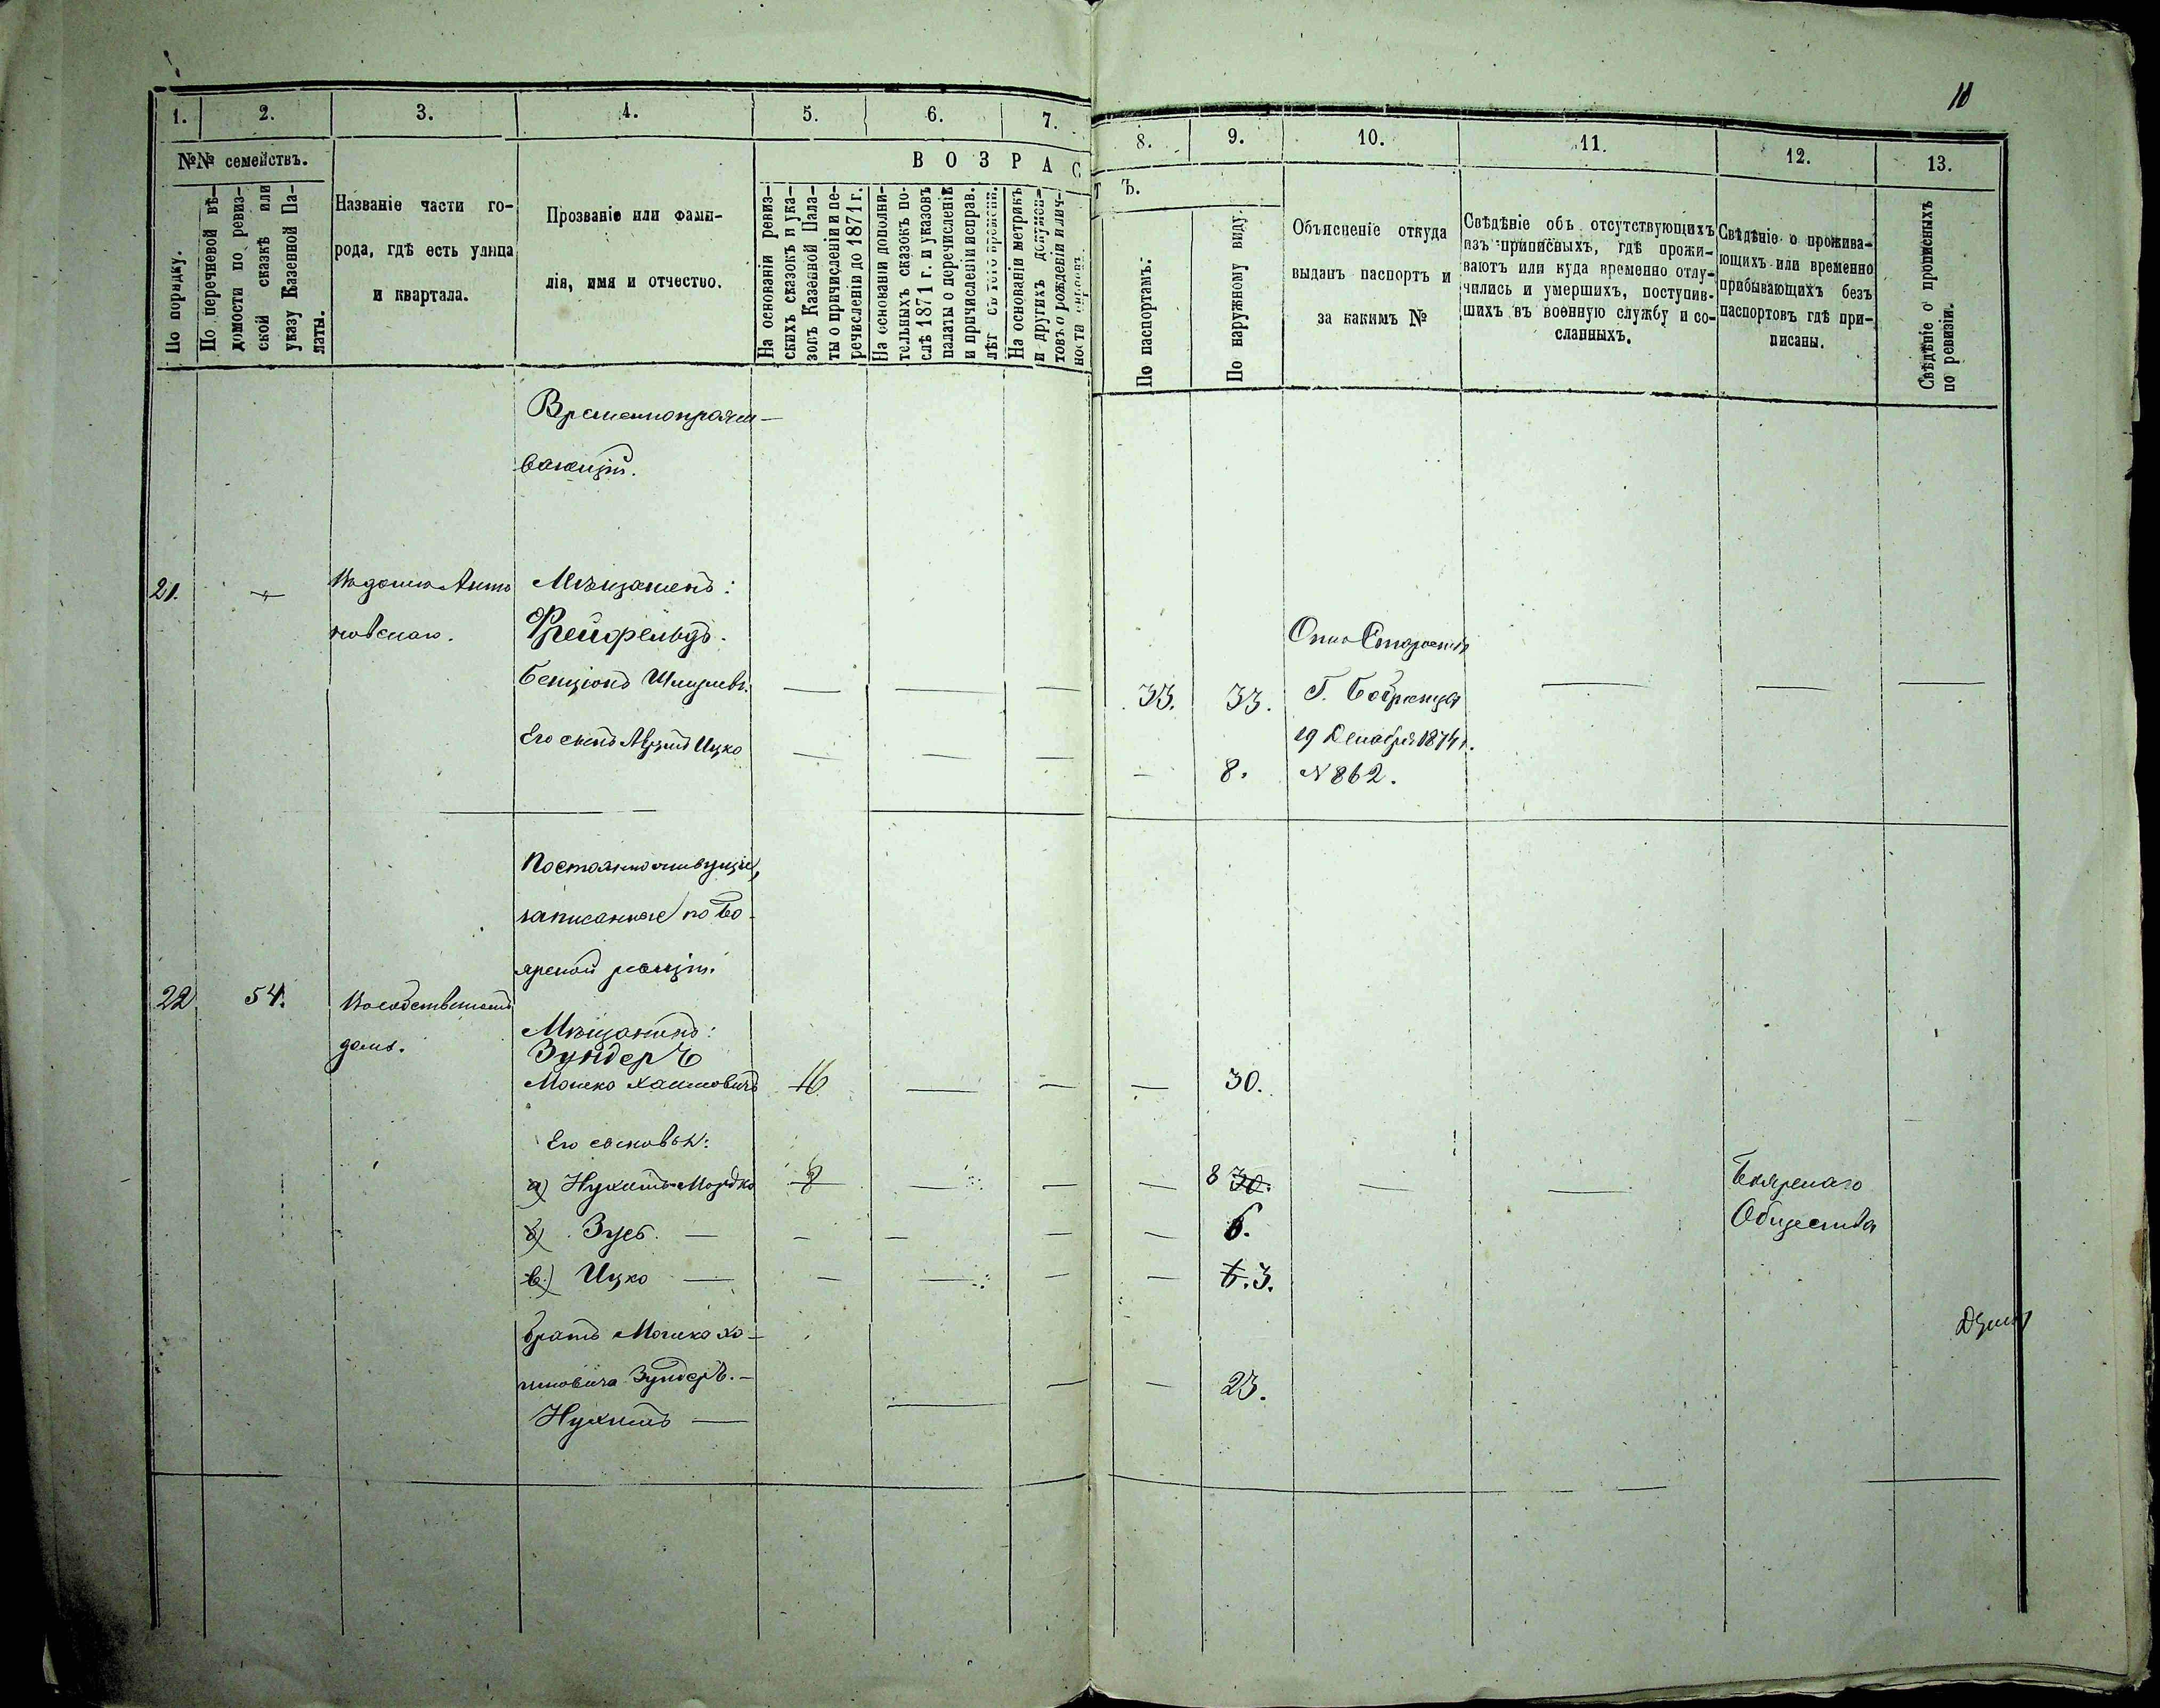 18
1. 2. 3. 4. 5. 6. 7. 8. 9. 10. 11. 12. 13.
№№ семействъ.
По порядку.
По перечневой вѣ-
домости по ревиз-
ской сказкѣ или
указу Казенной Па-
латы.
Названіе части го-
рода, гдѣ есть улица
и квартала.
Прозваніе или фами-
лія, имя и отчество.
ВОЗРАСТЪ.
На основаніи ревиз-
скихъ сказокъ и ука-
зовъ Казенной Пала-
ты о причисленіи и пе-
речисленіи до 1871 г.
На основаніи дополни-
тельныхъ сказокъ по-
слѣ 1871 г. и указовъ
палаты о перечисленіи
и причисленіи исправ.
лѣт съ того времени.
На основаніи метрикъ
и другихъ докумен-
товъ о рожденіи и лич-
ности
По паспортамъ.
По наружному виду.
Объясненіе откуда
выданъ паспортъ и
за какимъ №
Свѣдѣніе объ отсутствующихъ
изъ приписныхъ, гдѣ прожи-
ваютъ или куда временно отлу-
чились и умершихъ, поступив-
шихъ въ военную службу и со-
сланныхъ.
Свѣдѣніе о прожива-
ющихъ или временно
прибывающихъ безъ
паспортовъ гдѣ при-
писаны.
Свѣдѣніе о прописныхъ
по ревизіи.
Временнопрожи-
вающіи.
21. — Мѣщанинъ:
новскаго. Фрейфельдъ.
Бенціонъ — — — 33. 33. — — —
Его сынъ Ицко — — — — 8.
Старосты
Г.
19 Декабря 1874 г.
№ 862.
Постоянноживущіе,
записанные по Бо-
ярской ревизіи.
22 54. Въ собственномъ
домѣ.
Мѣщанинъ:
Зундеръ
Мошко Хаимовичъ 16 — — — 30.
Его сыновья:
а) Нухимъ-Мордко 8 — — — 8 30. — — Боярскаго
б) Зусь — — — — — 6. Общества
в) Ицко — — — — — 6. 3.
Братъ Мошка Ха-
имовича Зундеръ. — — — 23.
Нухимъ — —